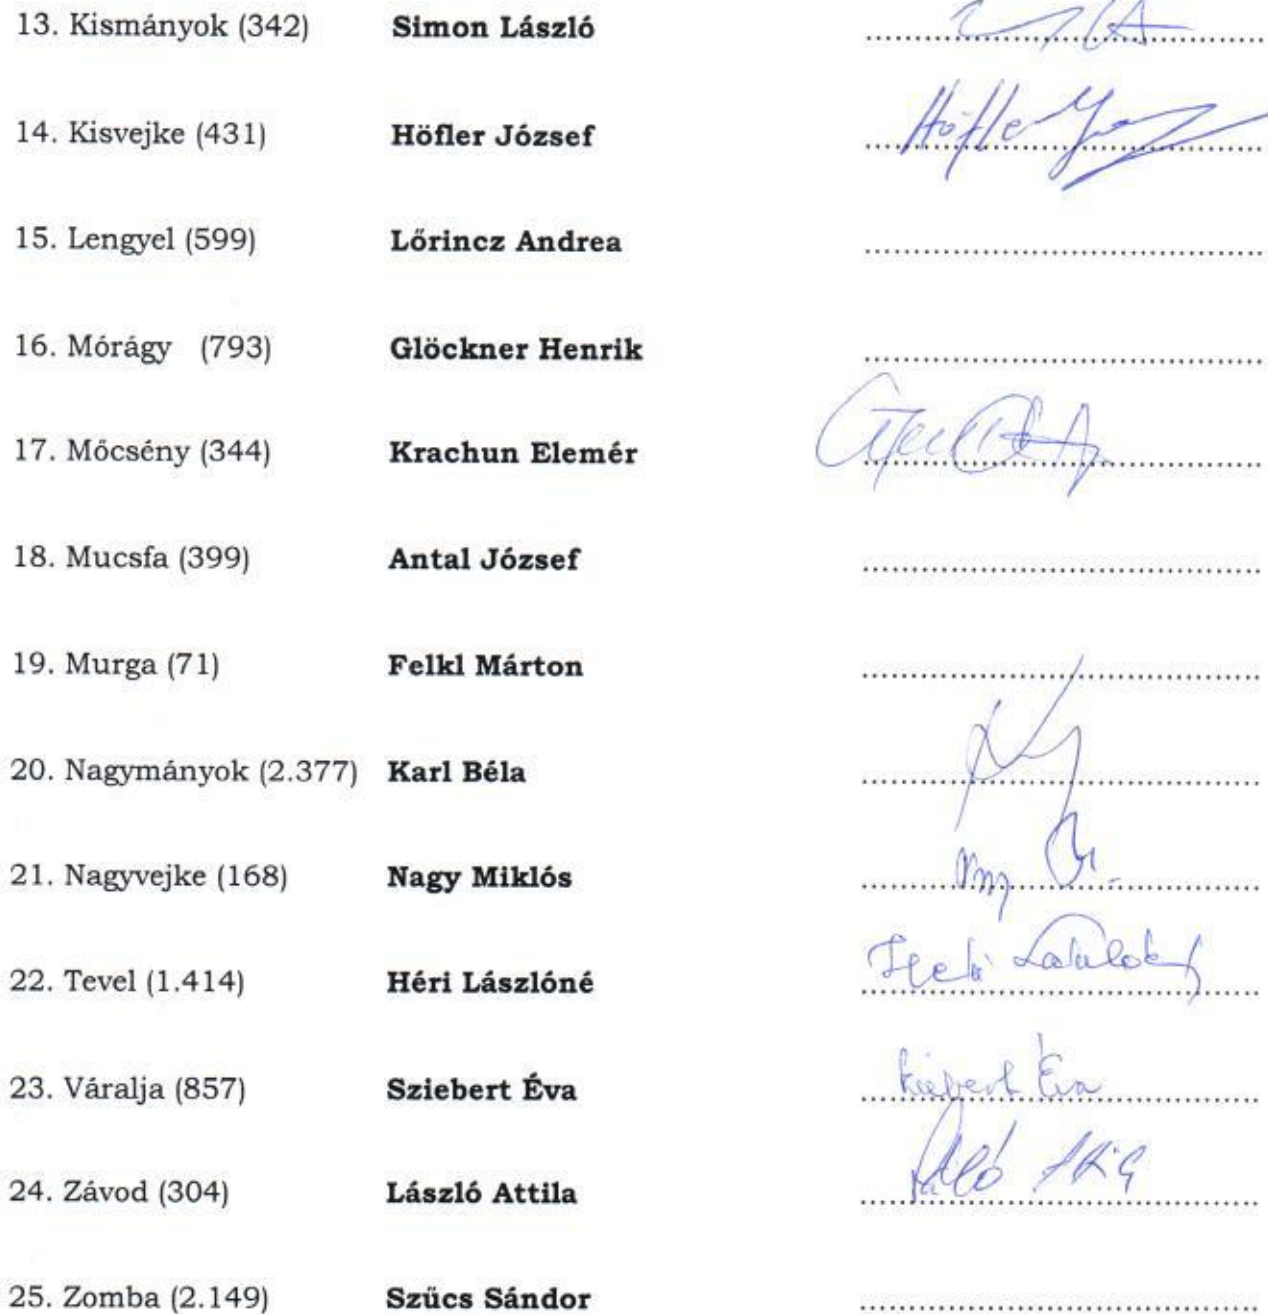 13. Kismányok (342) Simon László
14. Kisvejke (431) Höfler József Höfler
15. Lengyel (599) Lőrincz Andrea
16. Mórágy (793) Glöckner Henrik
17. Mőcsény (344) Krachun Elemér
18. Mucsfa (399) Antal József
19. Murga (71) Felkl Márton
20. Nagymányok (2.377) Karl Béla
21. Nagyvejke (168) Nagy Miklós
22. Tevel (1.414) Héri Lászlóné
23. Váralja (857) Sziebert Éva Éva
24. Závod (304) László Attila
25. Zomba (2.149) Szűcs Sándor